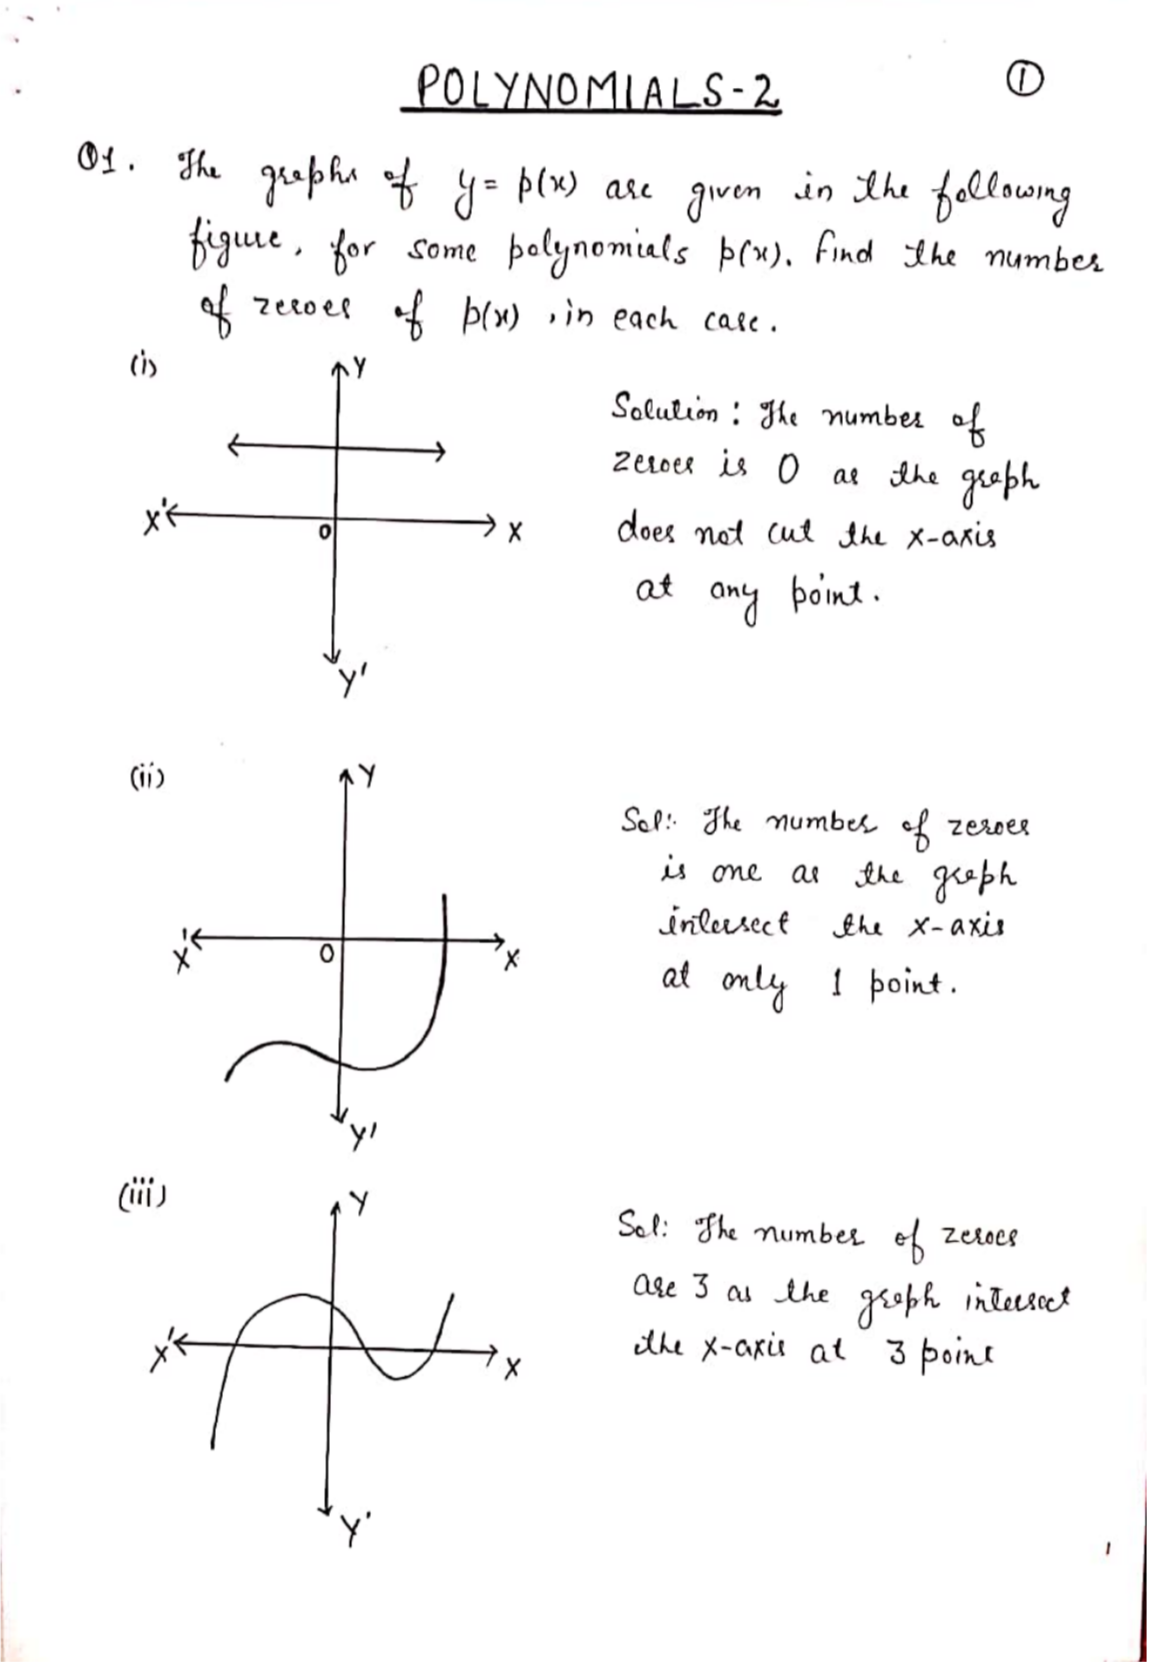 POLYNOMIALS-2
①
Q1. The graphs of y = p(x) are given in the following
figure, for some polynomials p(x). Find the number
of zeroes of p(x), in each case.
(i)
Y
X'
O
X
Y'
Solution: The number of
zeroes is 0 as the graph
does not cut the x-axis
at any point.
(ii)
Y
X'
O
X
Y'
Sol:. The number of zeroes
is one as the graph
intersect the x-axis
at only 1 point.
(iii)
Y
X'
X
Y'
Sol: The number of zeroes
are 3 as the graph intersect
the x-axis at 3 point